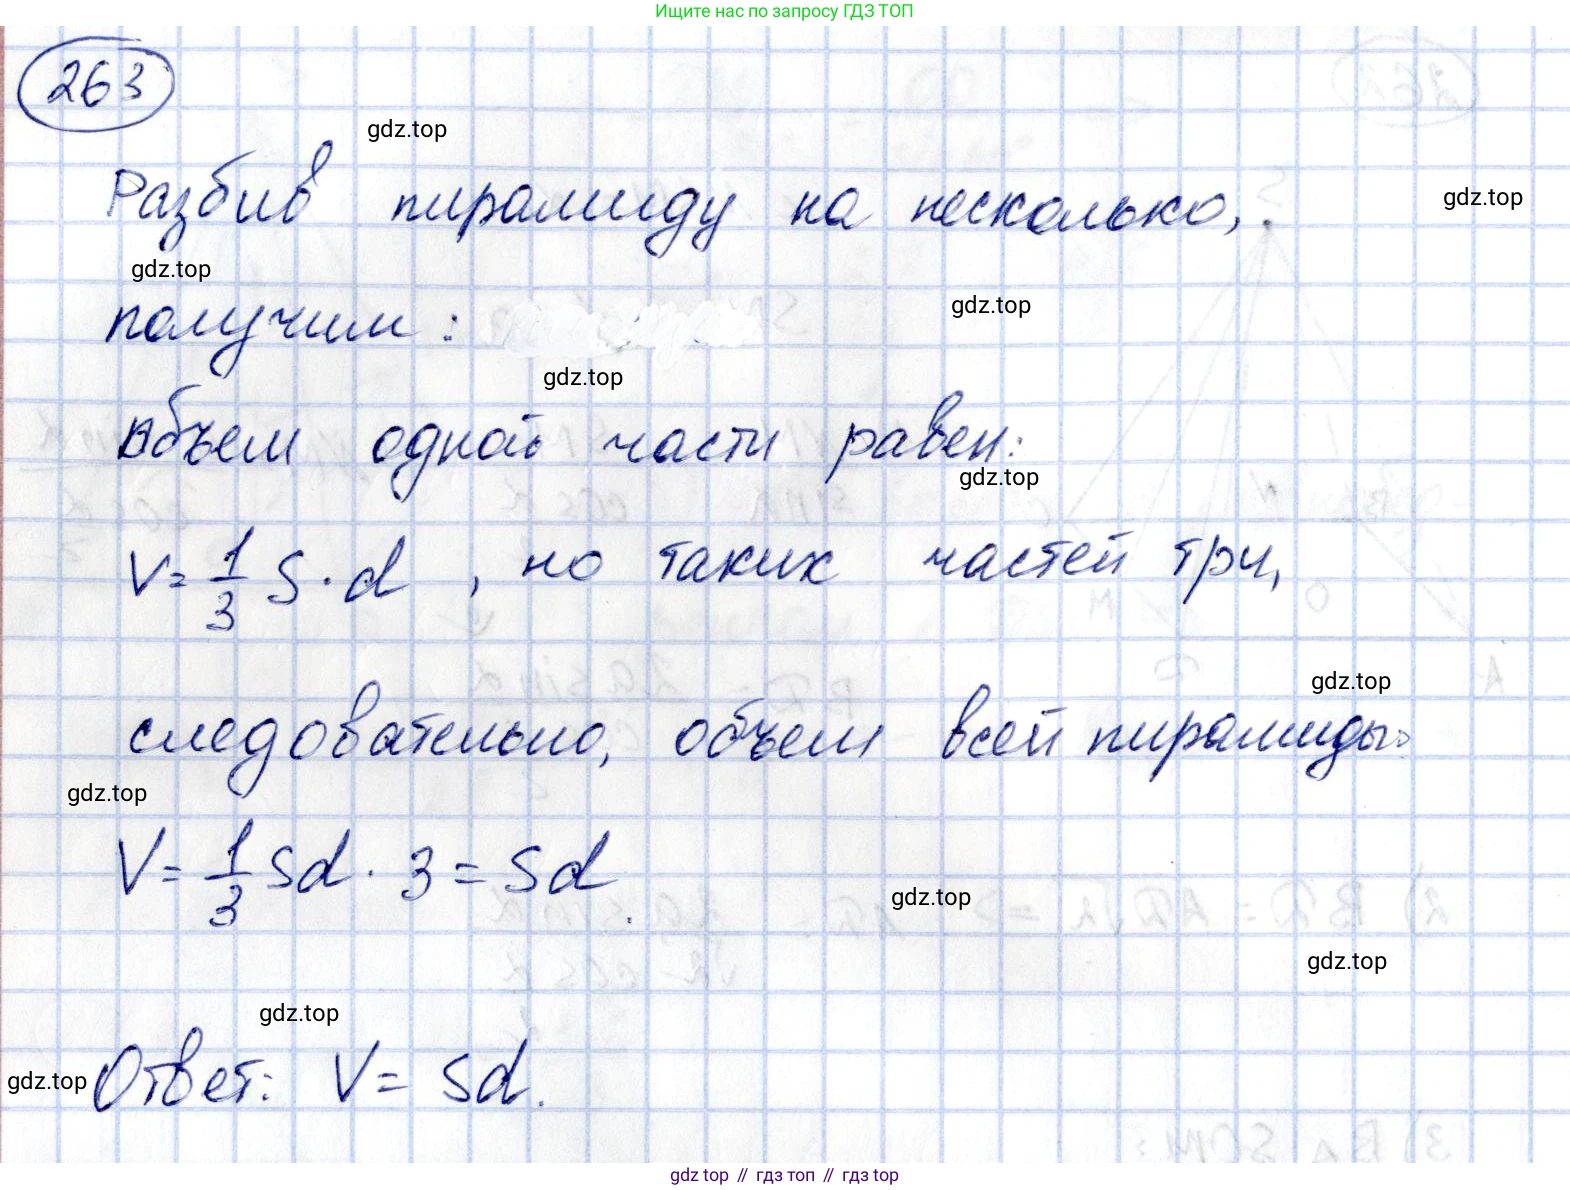 Ищите нас по запросу ГДЗ ТОП
263
gdz.top
Разбив пирамиду на несколько,
gdz.top
gdz.top
получим:
gdz.top
gdz.top
Объем одной части равен:
gdz.top
V = 1/3 S · d , но таких частей три,
gdz.top
следовательно, объем всей пирамиды:
gdz.top
V = 1/3 Sd · 3 = Sd.
gdz.top
gdz.top
gdz.top
gdz.top
Ответ: V = Sd.
gdz.top // гдз топ // гдз.top